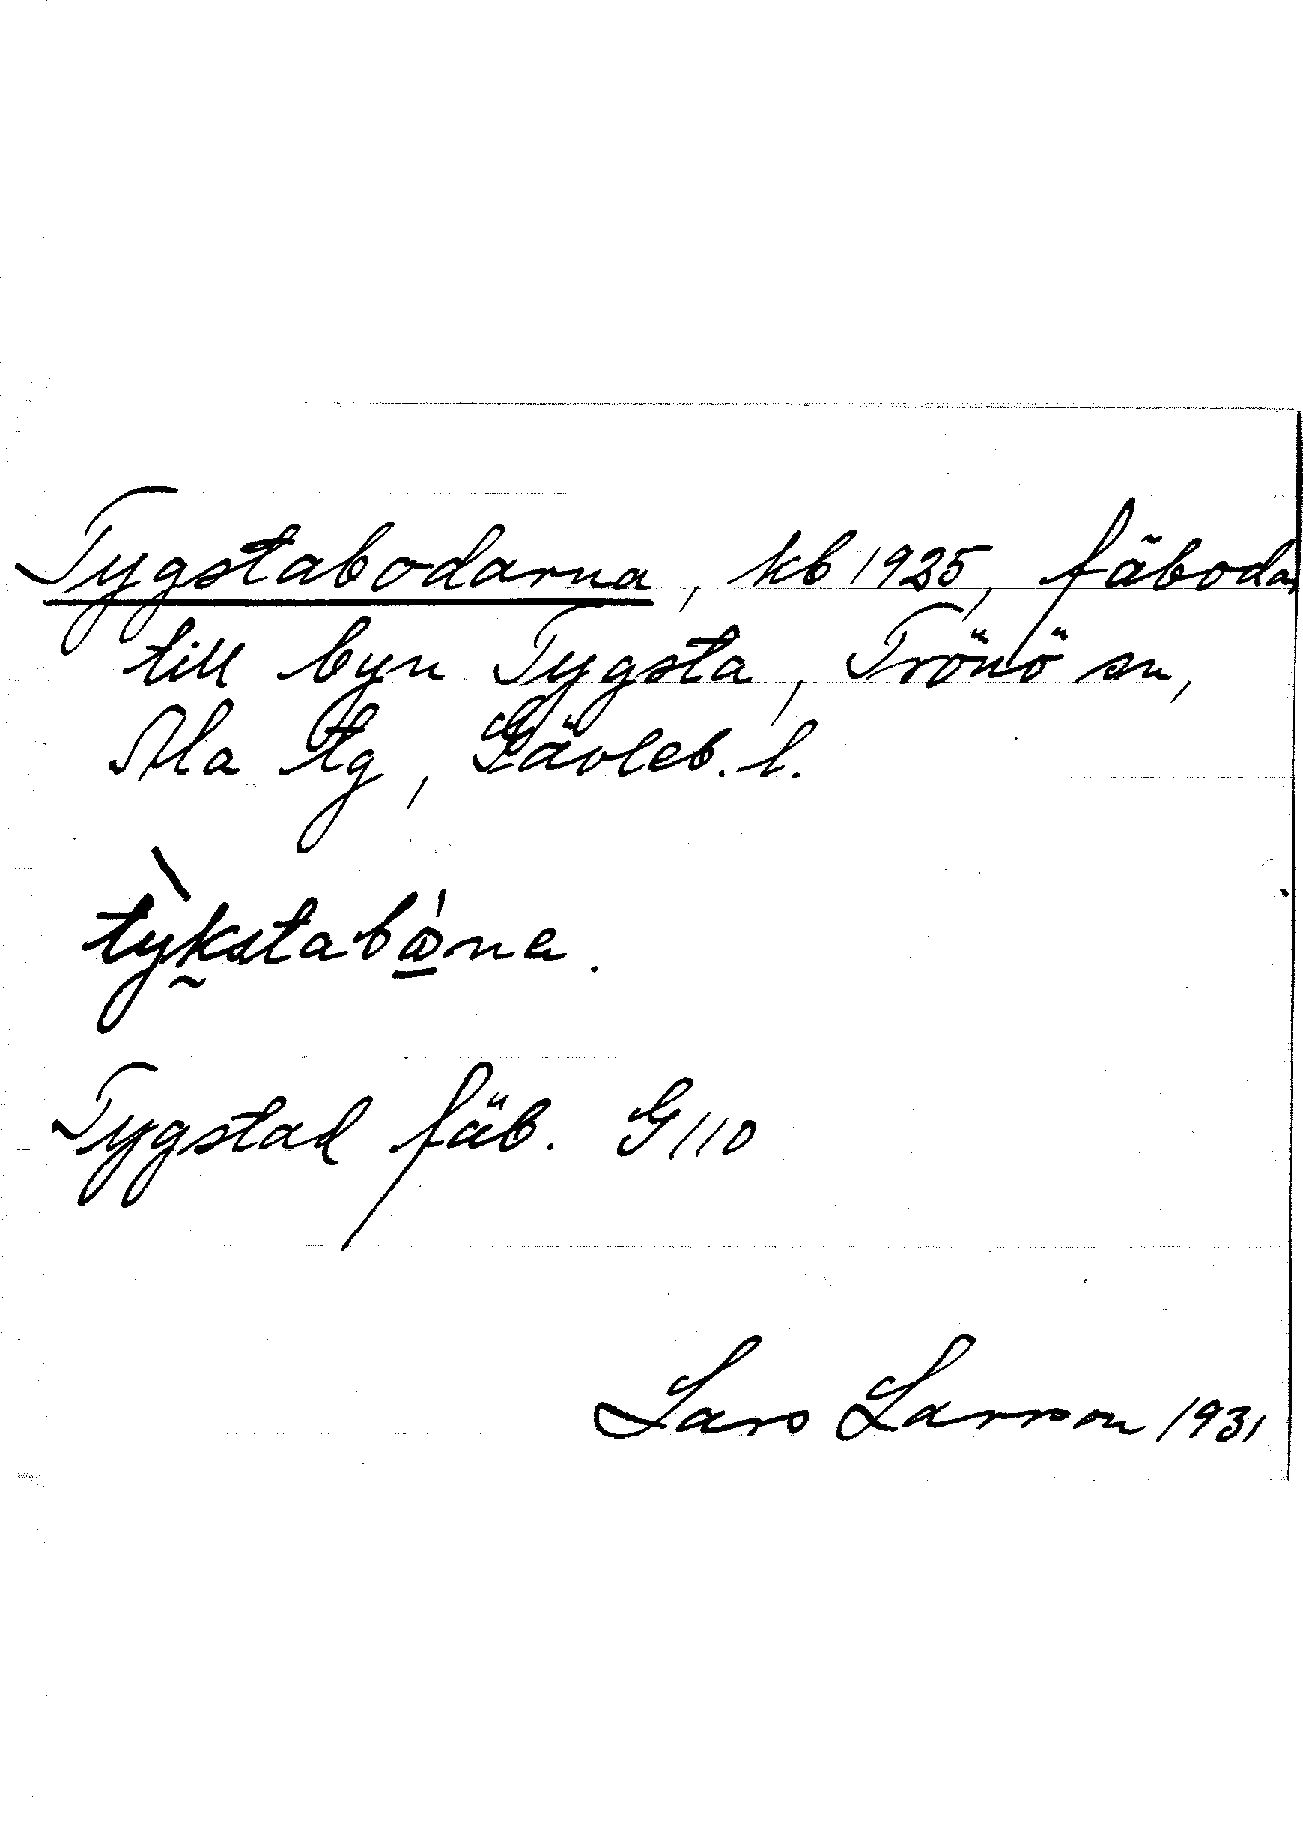 Tygstabodarna, kb 1925, fäboda
till byn Tygsta, Trönö sn,
Ala tg, Gävleb. l.
Tygstad fäb. G 110
Lars Larsson 1931